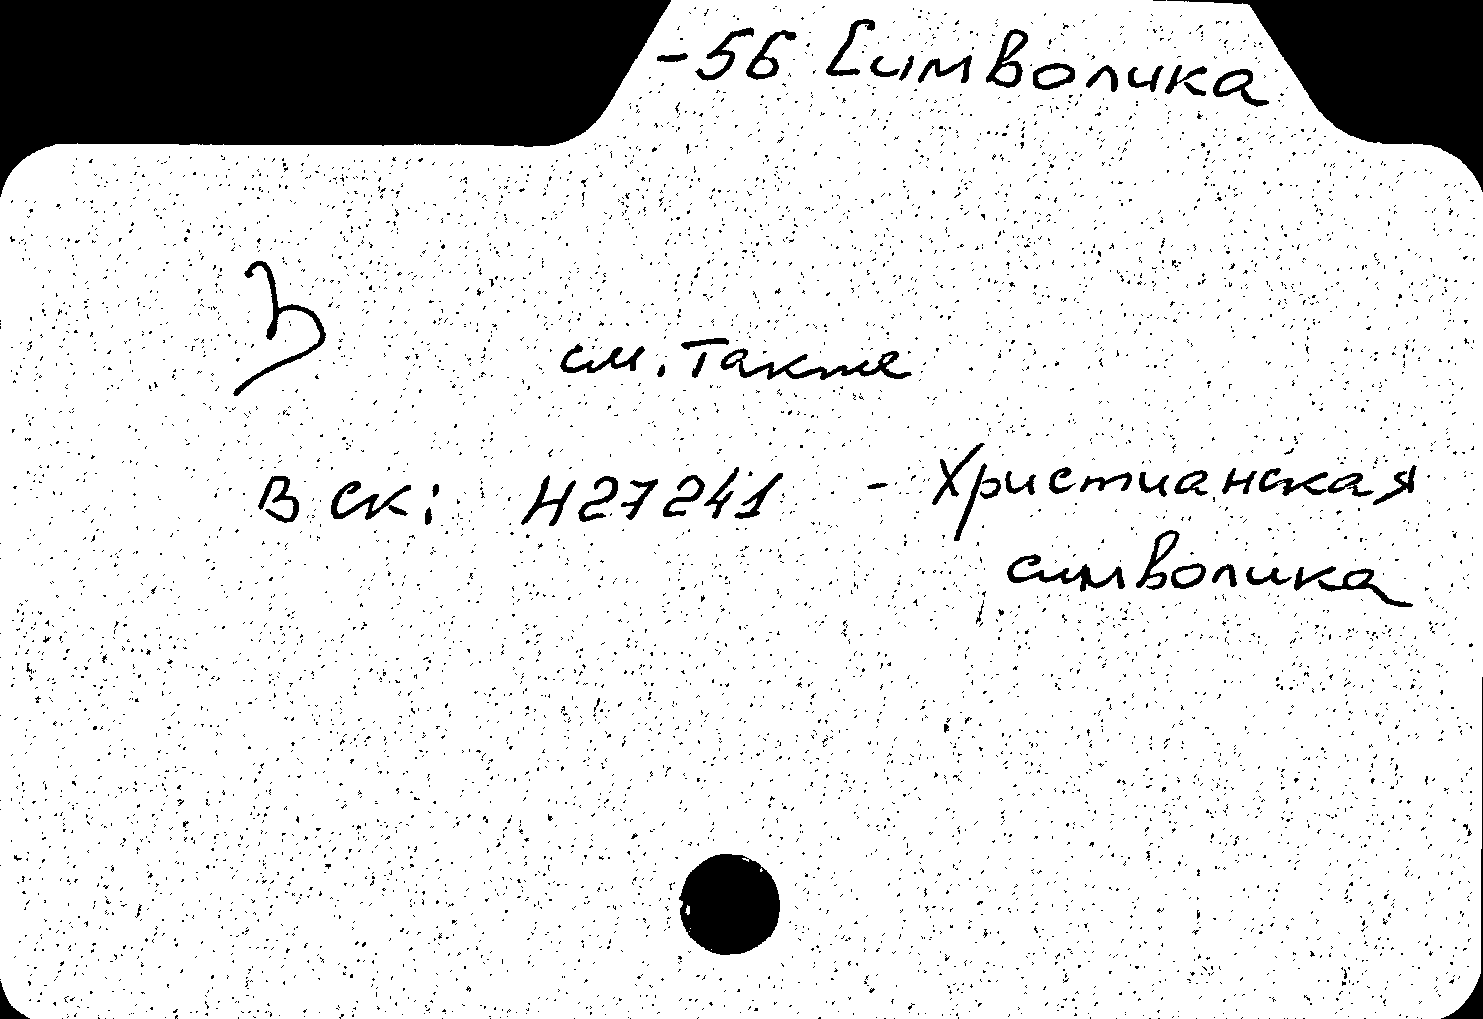 -56 Символика
см. также
В СК: Н27241 - Христианская
символика